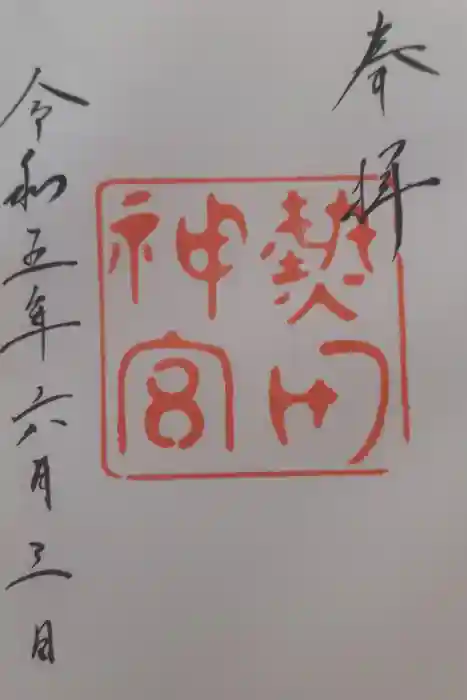 奉拝
熱田
神宮
令和五年六月三日